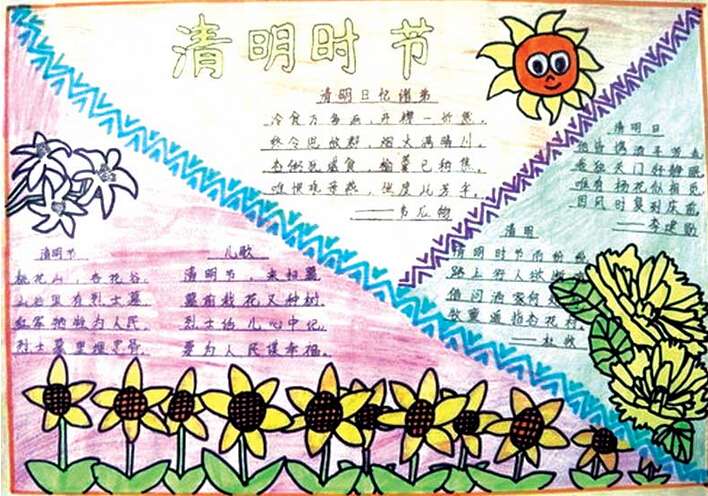 清明时节
清明日忆诸弟
冷食方多病,开襟一忻然。
终令思故郡,烟火满晴川。
杏粥犹堪食,榆羹已稍煎。
唯恨乖亲燕,坐度此芳年。
——韦应物
清明日
他皆携酒寻芳去
我独关门好静眠
唯有杨花似相觅
因风时复到床前
——李建勋
清明
清明时节雨纷纷
路上行人欲断
借问酒家何处
牧童遥指杏花村。
——杜牧
清明节
桃花山,杏花谷,
山谷里有烈士墓,
红军牺牲为人民,
烈士墓里埋忠骨。
儿歌
清明节,来扫墓,
墓前栽花又种树。
烈士 心中记,
要为人民谋幸福。